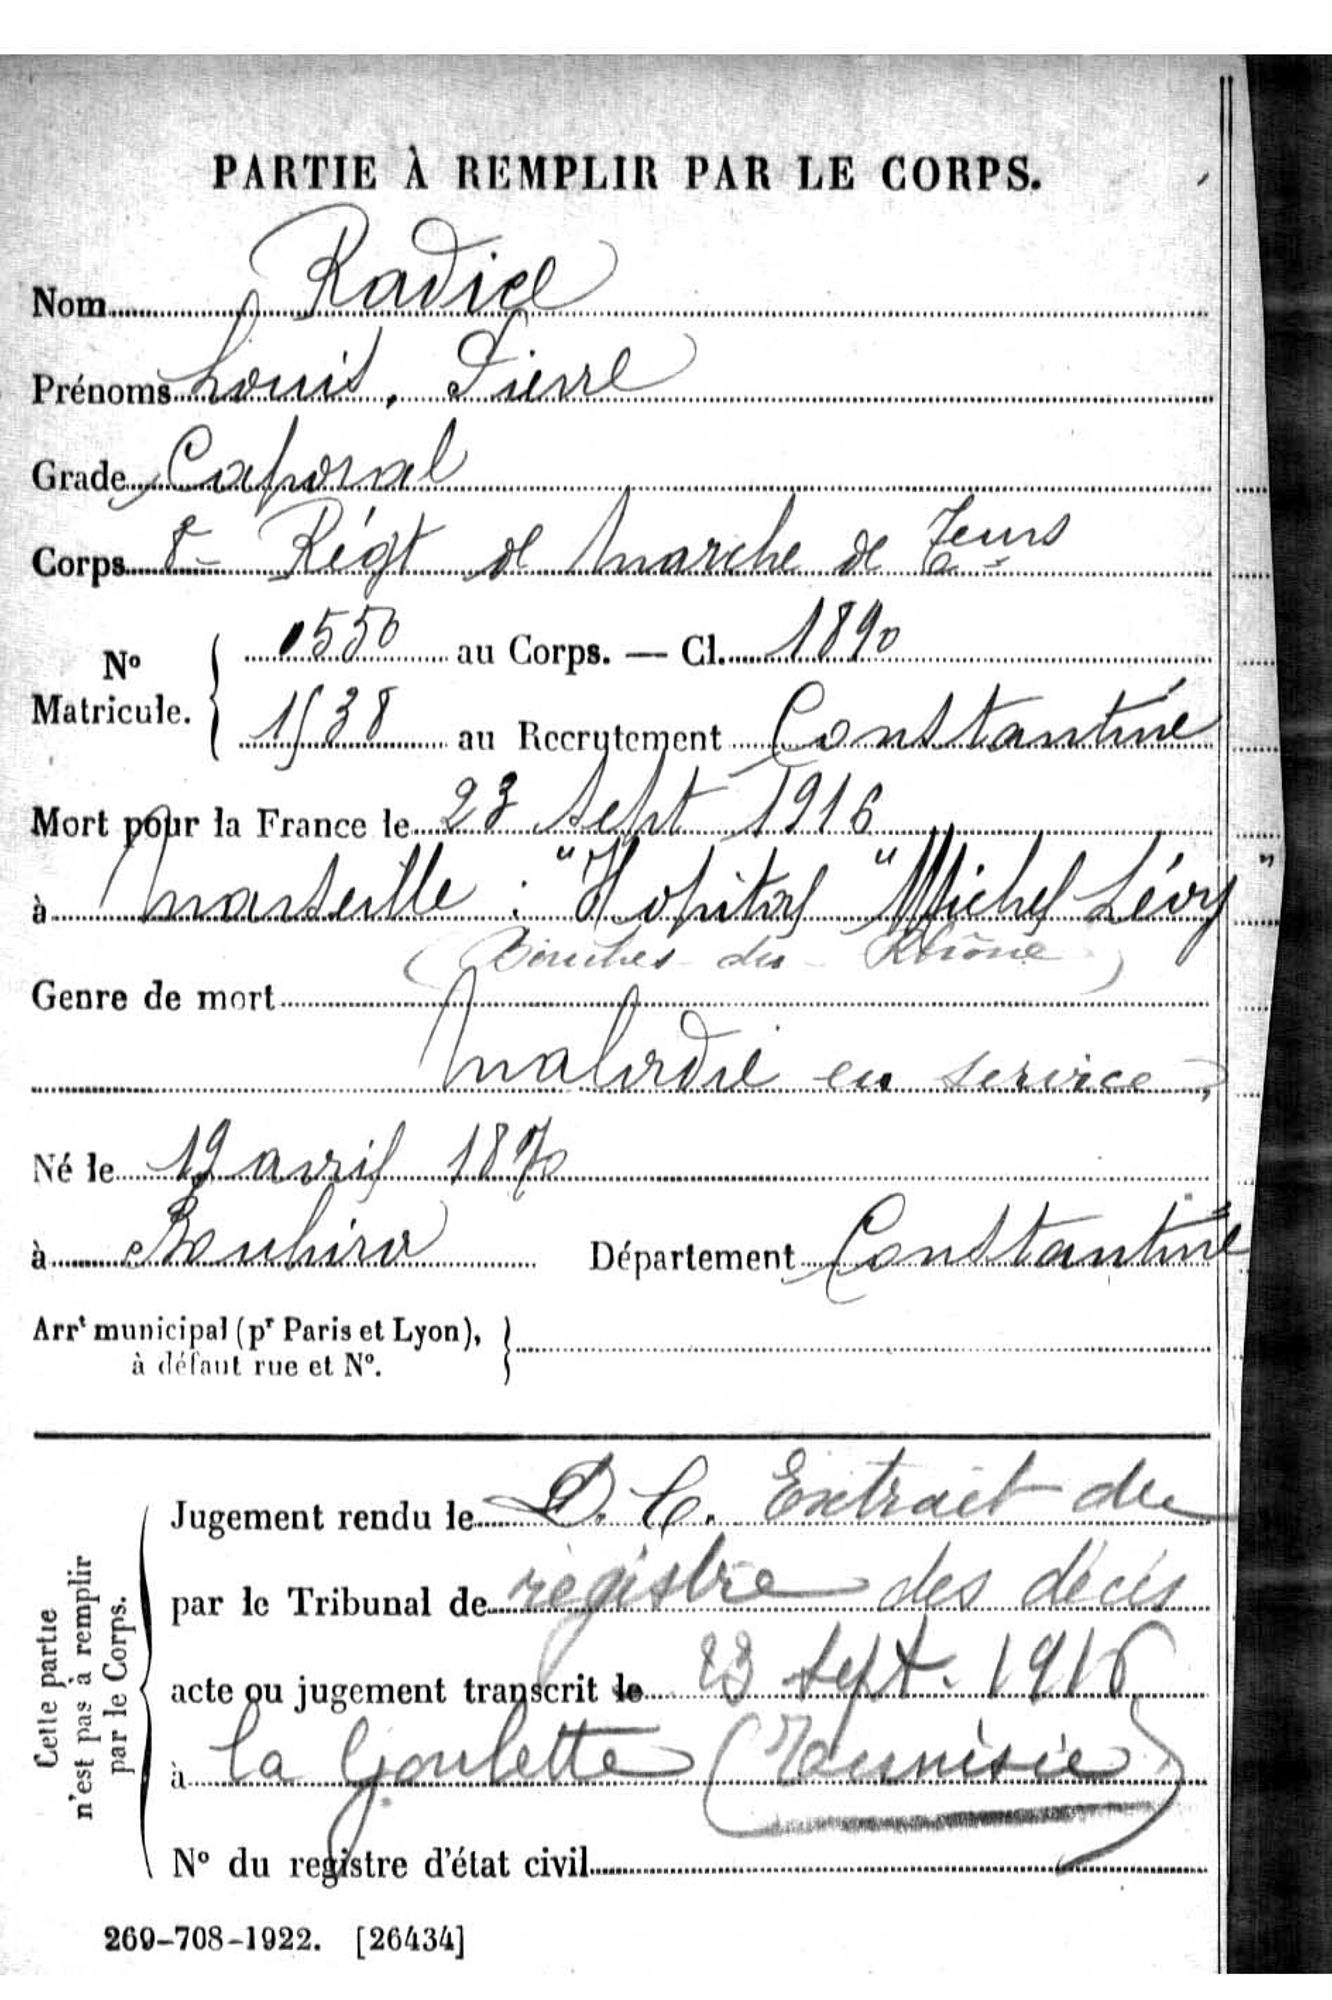 PARTIE À REMPLIR PAR LE CORPS.
Nom Radiel
Prénoms Louis, Pierre
Grade Caporal
Corps 8e Régt de Marche de Teurs
No Matricule. 0550 au Corps. — Cl. 1890
1538 au Recrutement Constantine
Mort pour la France le 23 Sept 1916
à Marseille : "Hopital "Michel Lévy"
(Bouches-du-Rhône)
Genre de mort
Maladie en service
Né le 19 avril 1870
à Bouhira Département Constantine
Arrt municipal (pr Paris et Lyon),
à défaut rue et No.
Cette partie
n'est pas à remplir
par le Corps.
Jugement rendu le D.C. Extrait du
par le Tribunal de registre des décès
acte ou jugement transcrit le 23 sept. 1916
à la Goulette (Tunisie)
No du registre d'état civil
269-708-1922. [26434]